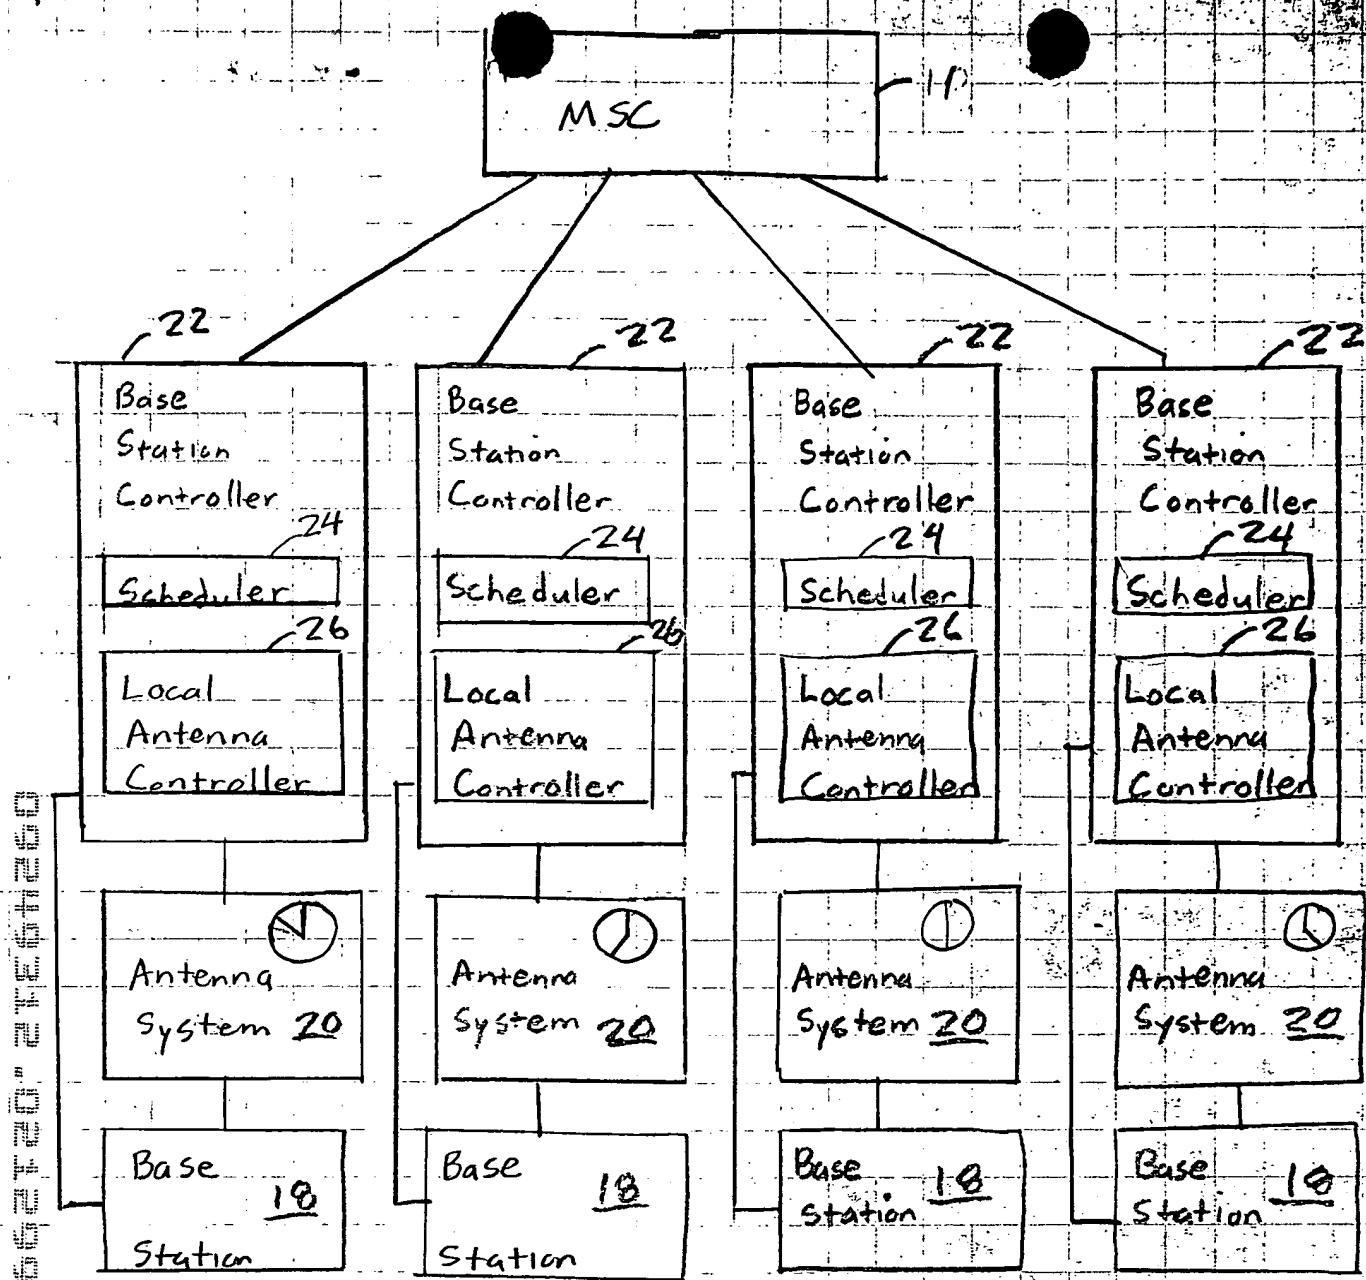 MSC
10
22
Base
Station
Controller
24
Scheduler
26
Local
Antenna
Controller
Antenna
System 20
Base
18
Station
22
Base
Station
Controller
24
Scheduler
26
Local
Antenna
Controller
Antenna
System 20
Base
18
Station
22
Base
Station
Controller
24
Scheduler
26
Local
Antenna
Controller
Antenna
System 20
Base
Station 18
22
Base
Station
Controller
24
Scheduler
26
Local
Antenna
Controller
Antenna
System 20
Base
Station 18